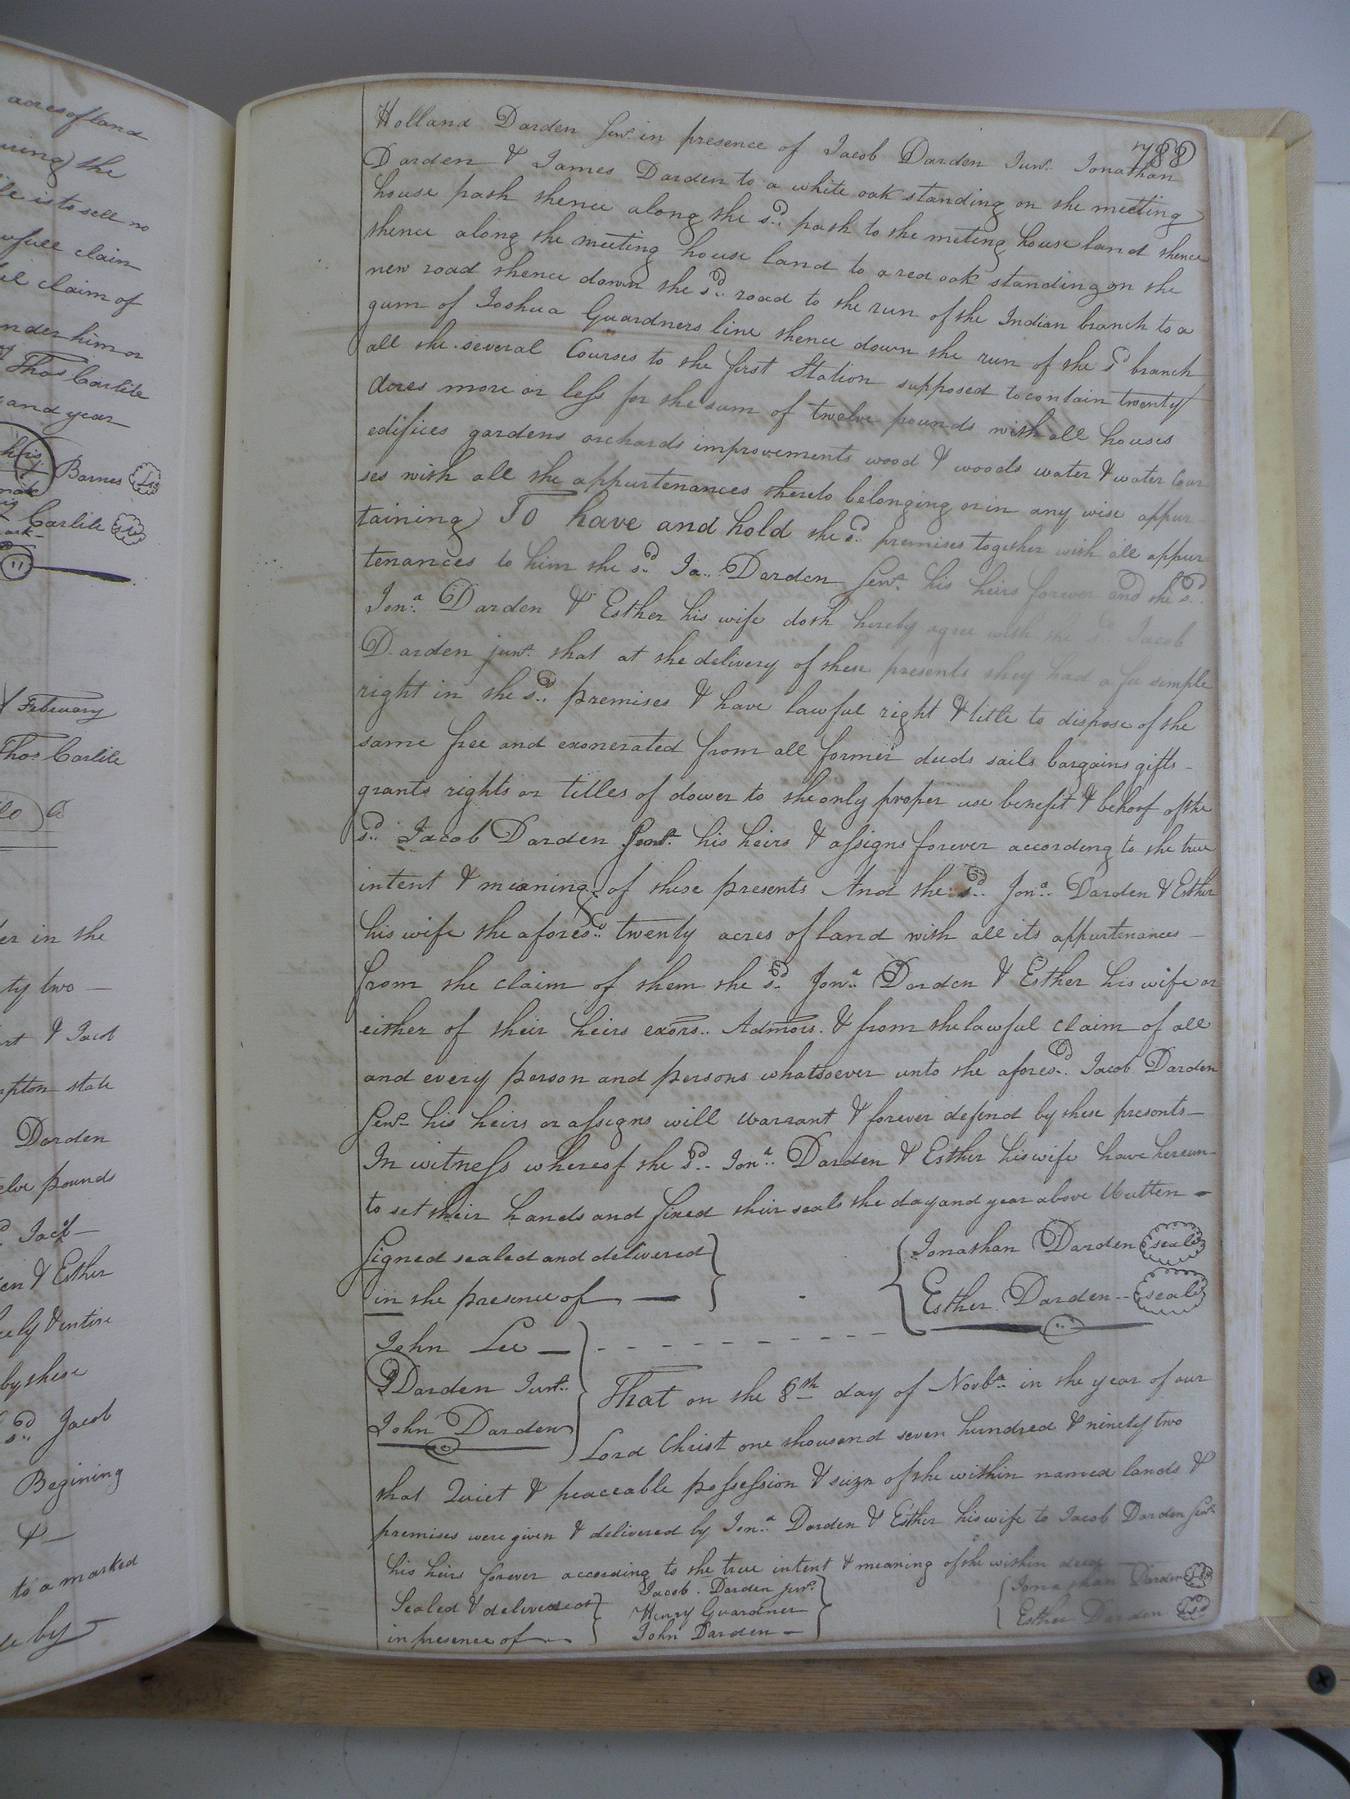 acres of land
the
is to sell no
full claim
claim of
under him or
Thos Carlile
and year
his
Barnes
Carlile
February
Thos Carlile
in the
ty two —
& Jacob
state
Darden
pounds
& Esther
& entire
by these
sd Jacob
Begining
& —
to a marked
by
788
Holland Darden Senr. in presence of Jacob Darden Junr. Jonathan
Darden & James Darden to a white oak standing on the meeting
house path thence along the sd. path to the meting house land thence
thence along the meeting house land to a red oak standing on the
new road thence down the sd. road to the run of the Indian branch to a
gum of Joshua Guardners line thence down the run of the sd branch
all the several Courses to the first Station supposed to contain twenty
Acres more or less for the sum of twelve pounds with all houses
edifices gardens orchards improvements wood & woods water & water Cour
ses with all the appurtenances thereto belonging or in any wise appur
taining TO have and hold the sd. premises together with all appur
tenances to him the sd. Ja.. Darden Senr. his heirs forever and the sd..
Jona. Darden & Esther his wife doth hereby agree with the sd. Jacob
Darden junr. that at the delivery of these presents they had a fee simple
right in the sd.. premises & have lawful right & title to dispose of the
same free and exonerated from all former deeds sails bargains gifts -
grants rights or titles of dower to the only proper use benefit & behoof of the
sd. Jacob Darden Senr. his heirs & assigns forever according to the true
intent & meaning of these presents And the sd.. Jona.. Darden & Esther
his wife the aforesd.. twenty acres of land with all its appurtenances —
from the claim of them the sd. Jona.. Darden & Esther his wife or
either of their heirs exors.. Admors. & from the lawful claim of all
and every person and persons whatsoever unto the aforesd.. Jacob Darden
Senr. his heirs or assigns will warrant & forever defend by these presents —
In witness whereof the sd.. Jona.. Darden & Esther his wife have hereun-
to set their hands and fixed their seals the day and year above Written —
Signed sealed and delivered
in the presence of —
Jonathan Darden seal
Esther Darden -- seal
John Lee —
Darden Junr..
John Darden
That on the 8th day of Novbr. in the year of our
Lord Christ one thousand seven hundred & ninety two
that Quiet & peaceable possession & suzn of the within named lands &
premises were given & delivered by Jona.. Darden & Esther his wife to Jacob Darden Senr.
his heirs forever according to the true intent & meaning of the within deed
Sealed & delivered
in presence of —
Jacob Darden junr.
Henry Guardner
John Darden —
Jonathan Darden
Esther Darden